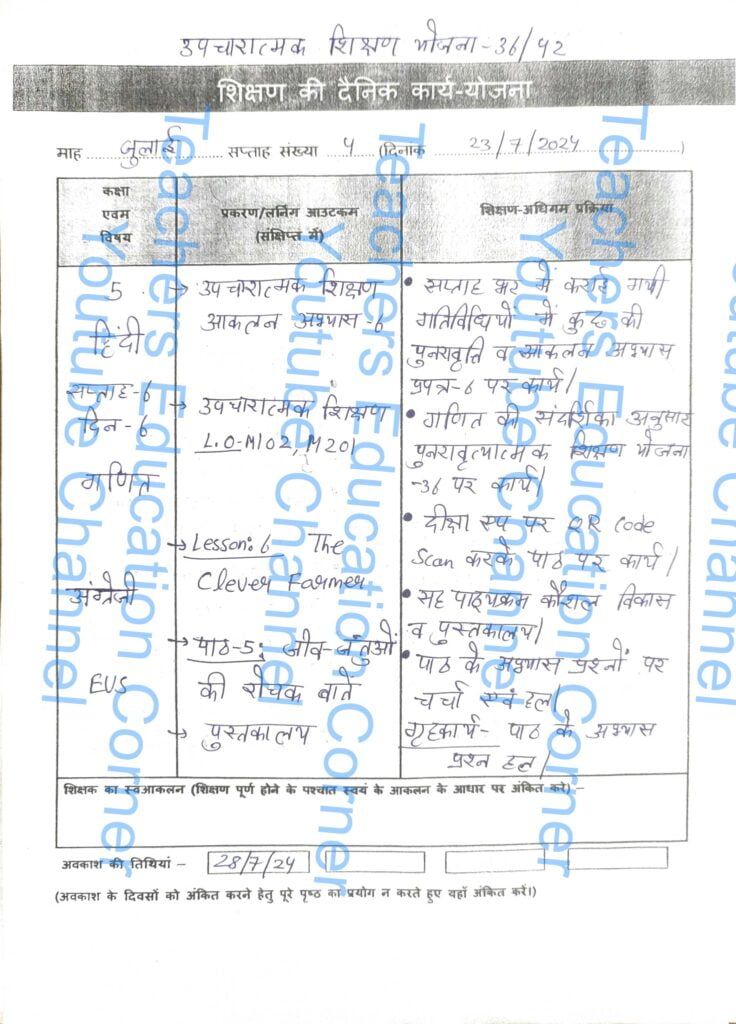 उपचारात्मक शिक्षण योजना-36/42
शिक्षण की दैनिक कार्य-योजना
माह जुलाई सप्ताह संख्या 4 (दिनाक 23/7/2024)
कक्षा
एवम
विषय
प्रकरण/लर्निंग आउटकम
(संक्षिप्त में)
शिक्षण-अधिगम प्रक्रिया
5
हिंदी
सप्ताह-6
दिन-6
गणित
अंग्रेजी
EVS
→ उपचारात्मक शिक्षण
आकलन अभ्यास-6
→ उपचारात्मक शिक्षण
L.O-M102, M201
→ Lesson: 6 The
Clever Farmer
→ पाठ-5: जीव-जंतुओं
की रोचक बातें
→ पुस्तकालय
• सप्ताह भर में कराई गयी
गतिविधियों में कुछ की
पुनरावृत्ति व आकलन अभ्यास
प्रपत्र-6 पर कार्य।
• गणित की संदर्शिका अनुसार
पुनरावृत्यात्मक शिक्षण योजना
-36 पर कार्य।
• दीक्षा एप पर QR Code
Scan करके पाठ पर कार्य।
• सह पाठ्यक्रम कौशल विकास
व पुस्तकालय।
• पाठ के अभ्यास प्रश्नों पर
चर्चा एवं हल।
गृहकार्य- पाठ के अभ्यास
प्रश्न हल।
शिक्षक का स्वआकलन (शिक्षण पूर्ण होने के पश्चात स्वयं के आकलन के आधार पर अंकित करे) –
अवकाश की तिथियां – 28/7/24
(अवकाश के दिवसों को अंकित करने हेतु पूरे पृष्ठ का प्रयोग न करते हुए यहाँ अंकित करें।)
Teachers Education Corner
Youtube Channel
Teachers Education Corner
Youtube Channel
Teachers Education Corner
Youtube Channel
Youtube Channel